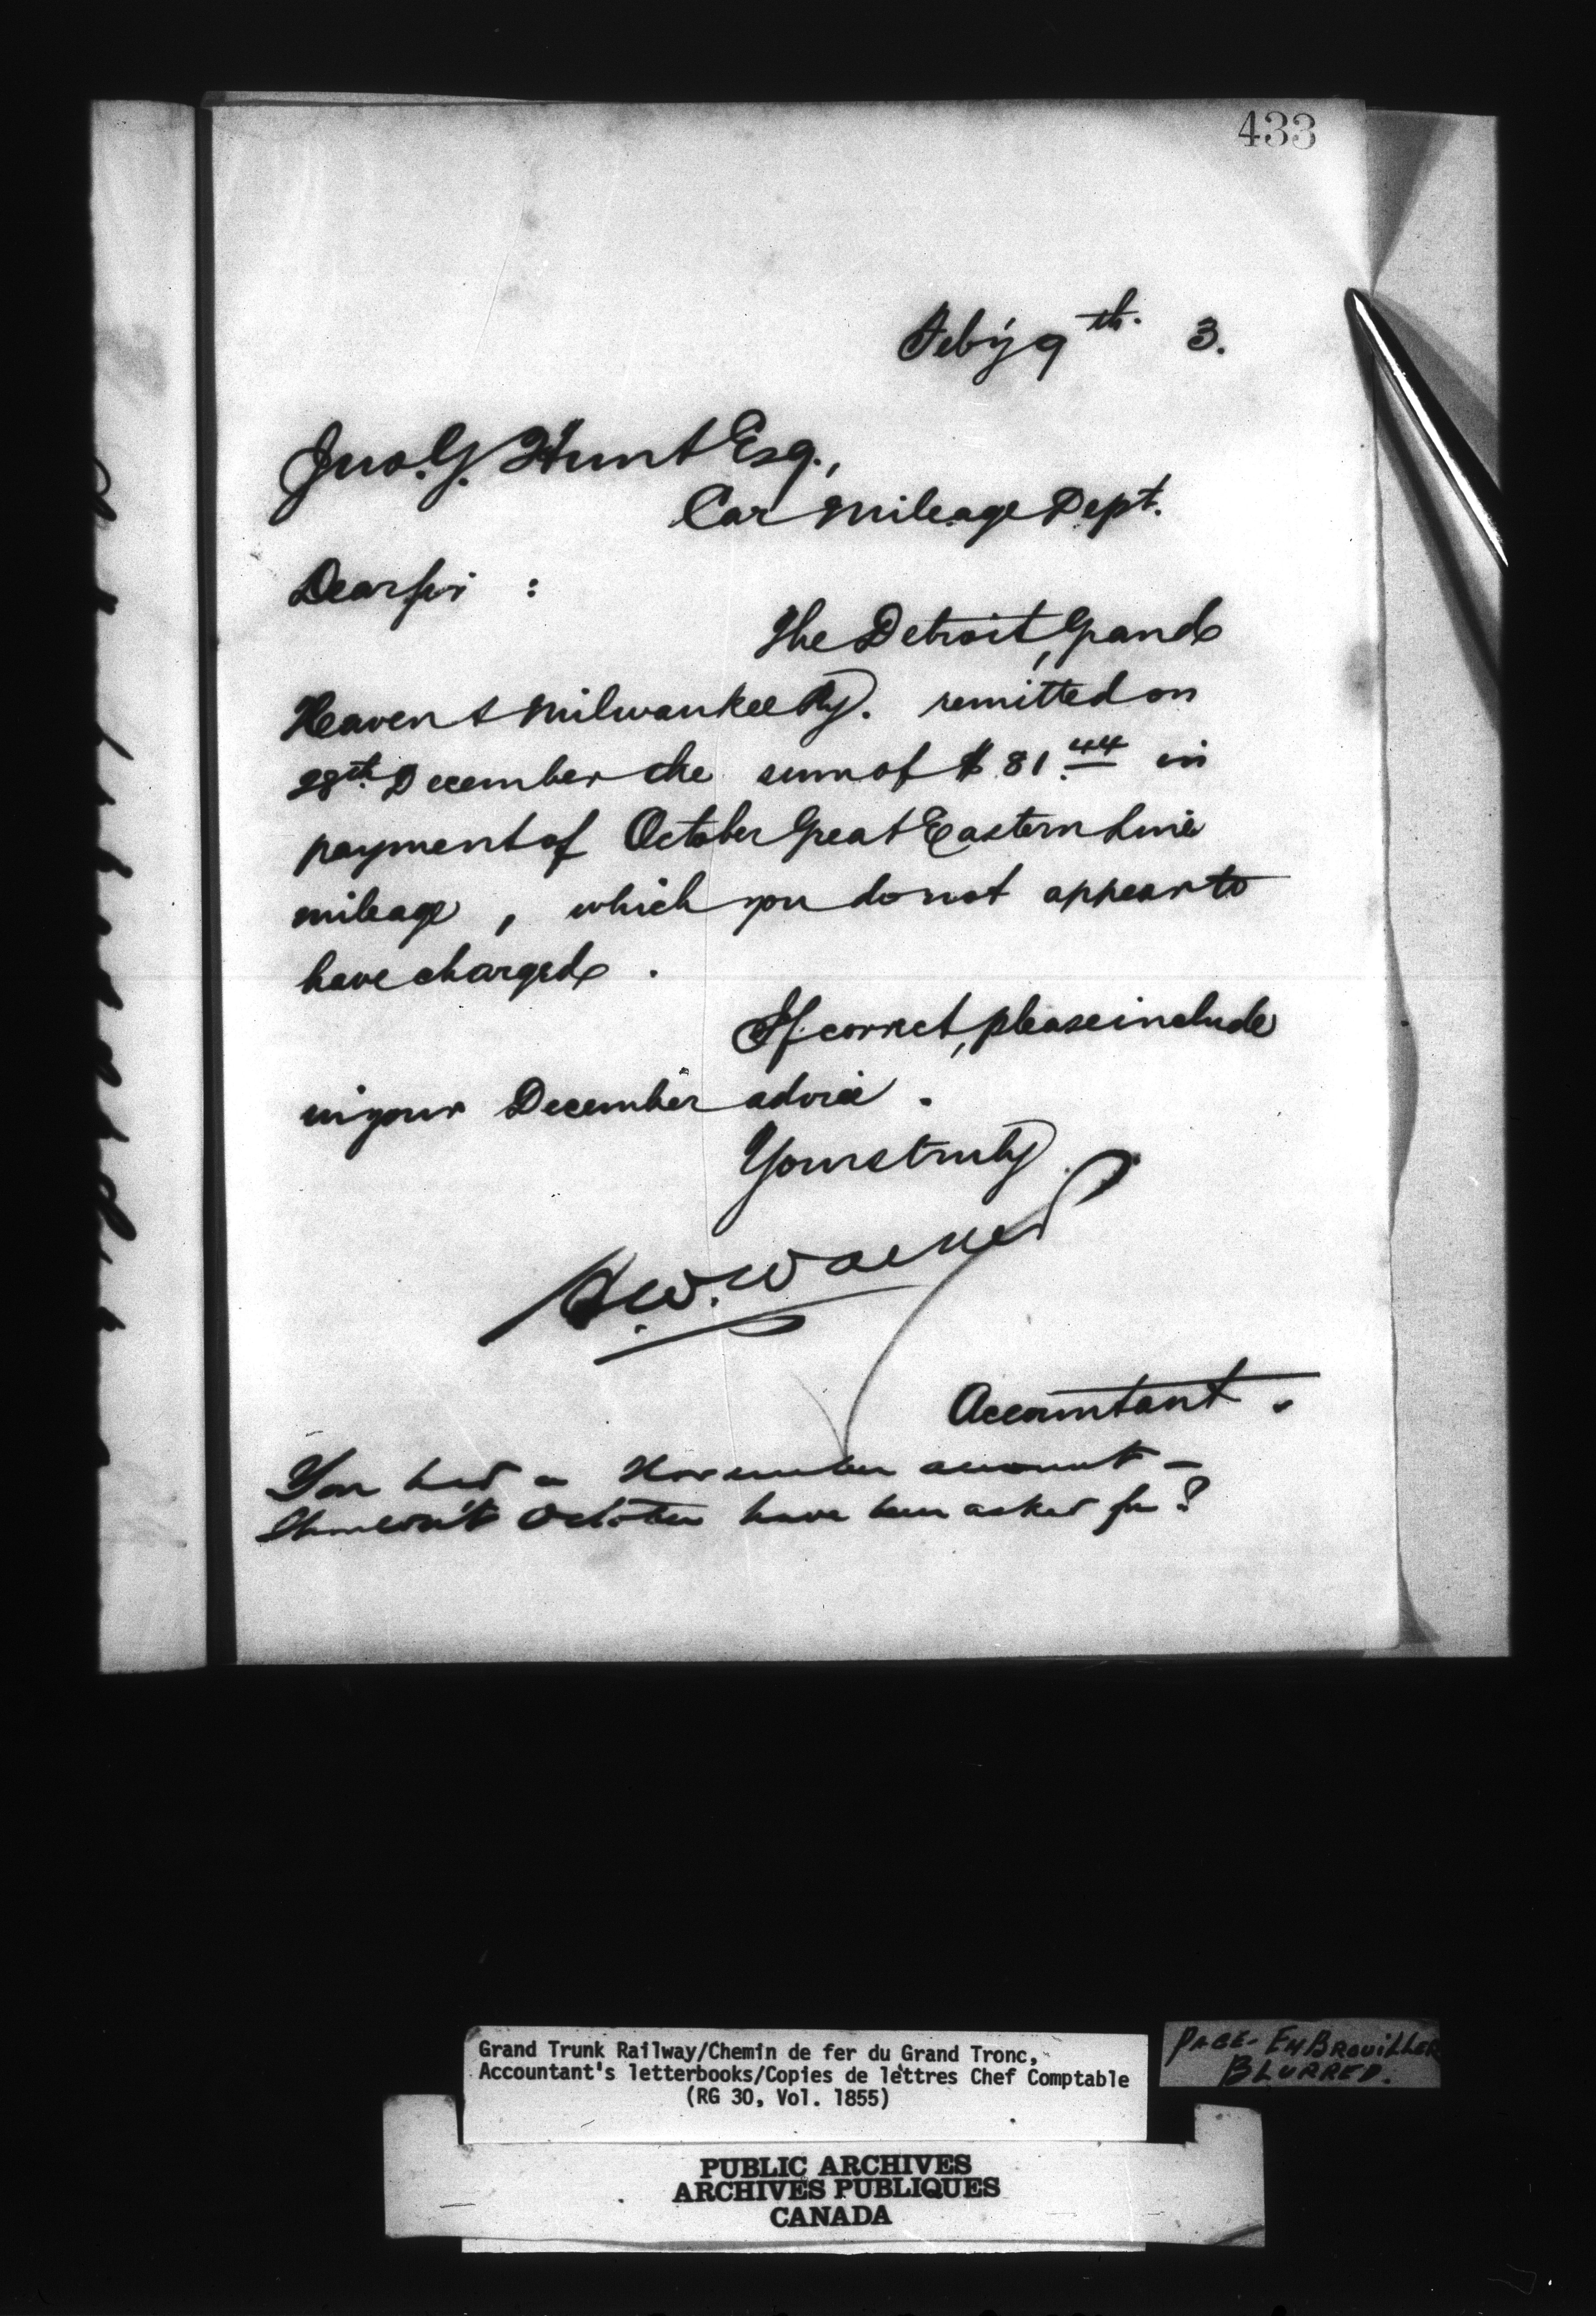 433
Feby 9th. 3.
Jno. G. Hunt Esq.,
Car Mileage Dept.
Dear Sir :
The Detroit, Grand
Heaven & Milwaukee Ry. remitted on
28th. December the sum of $81.44 in
payment of October Great Eastern Line
mileage, which you do not appear to
have charged.
If correct, please include
in your December advice.
Yours truly
H.W. Walker
Accountant.
You had a November account –
Shouldn't October have been asked for?
Grand Trunk Railway/Chemin de fer du Grand Tronc,
Accountant's letterbooks/Copies de lettres Chef Comptable
(RG 30, Vol. 1855)
PAGE - EMBROUILLER
BLURRED.
PUBLIC ARCHIVES
ARCHIVES PUBLIQUES
CANADA